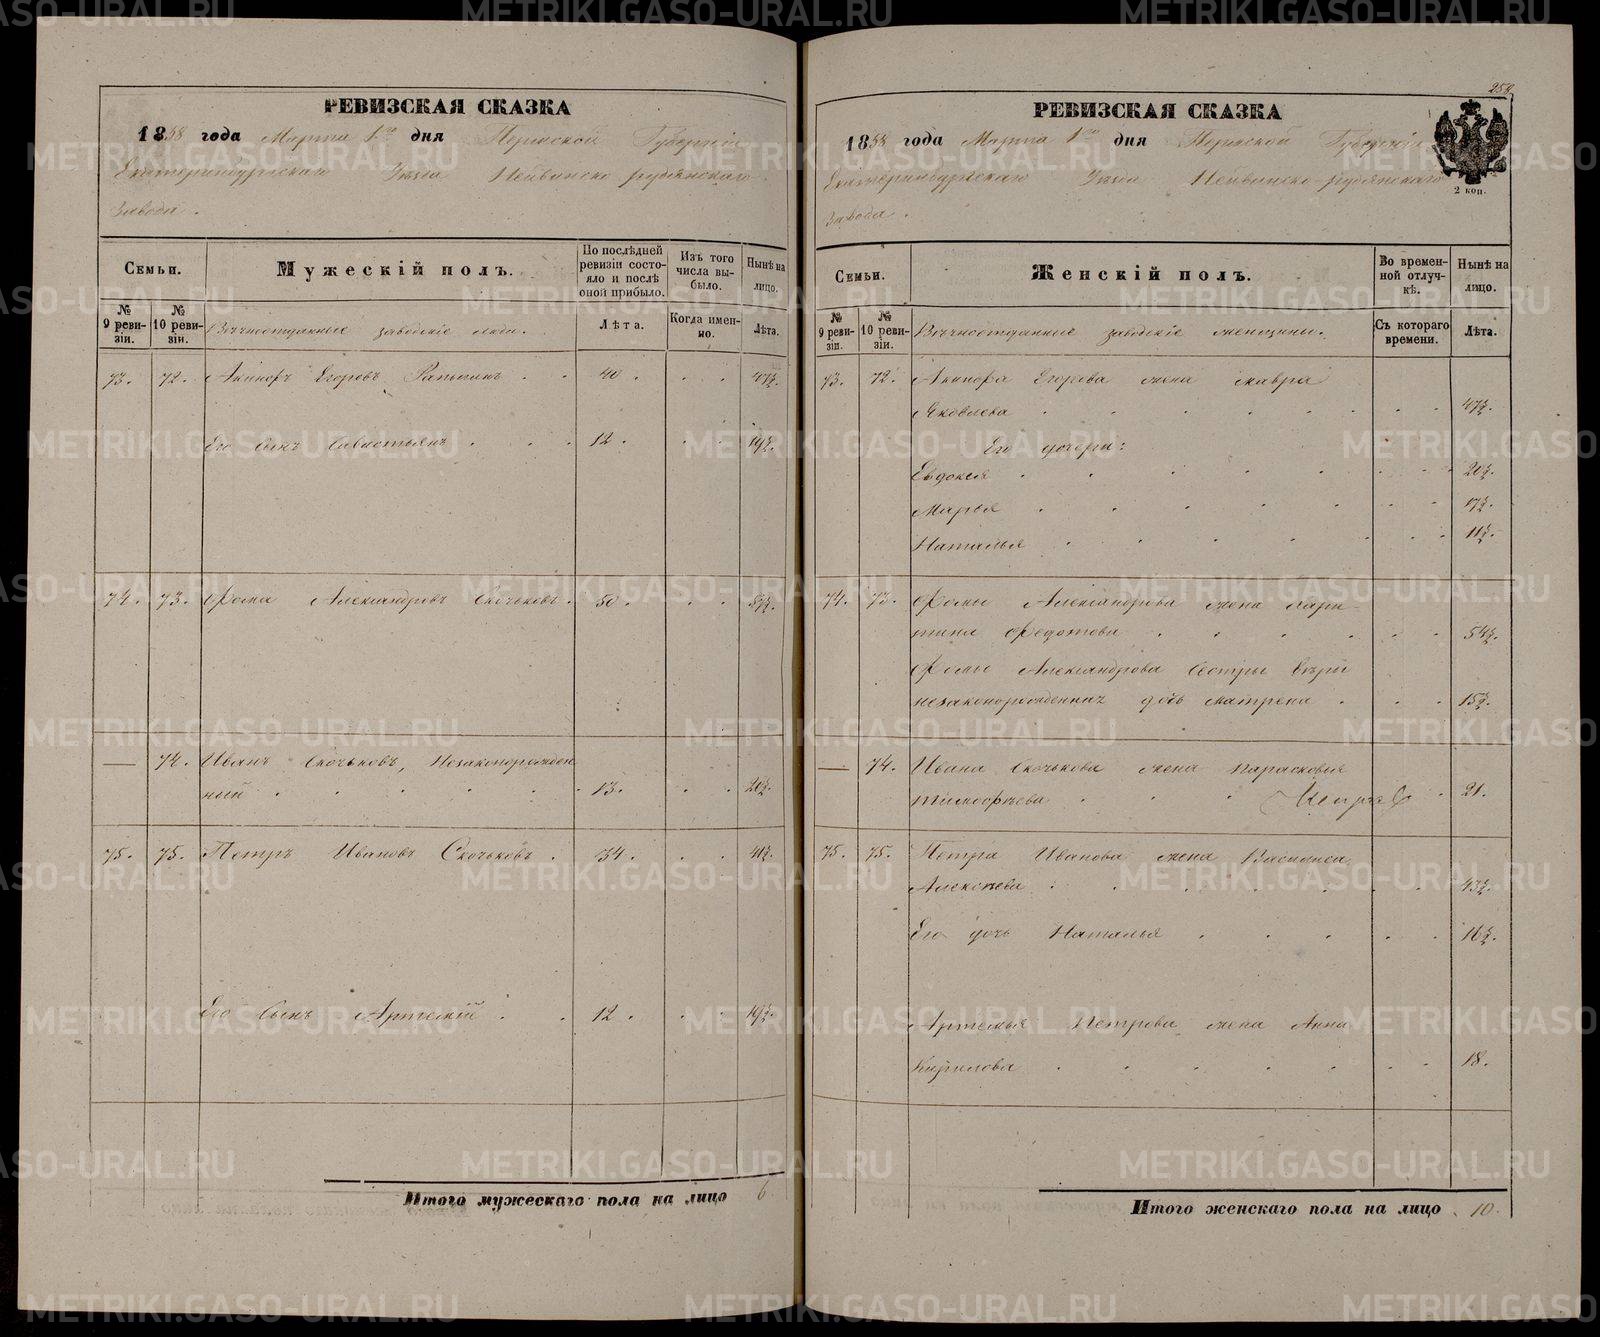 РЕВИЗСКАЯ СКАЗКА
1858 года Марта 1го дня Пермской Губернiи
Екатеринбургскаго Уѣзда Нейвинско-рудянскаго
завода.
Семьи.
Мужескій полъ.
По послѣдней ревизіи состояло и послѣ оной прибыло.
Изъ того числа выбыло.
Нынѣ на лицо.
№ 9 ревизіи.
№ 10 ревизіи.
Вѣчноотданные заводскіе люди.
Лѣта.
Когда именно.
Лѣта.
73. 72. Егоровъ 40 47½.
Его сынъ Савастьянъ 12. 19½.
74. 73. Фома Александровъ Скочьковъ. 50. 57½.
— 74. Иванъ Скочьковъ, Незаконорожден
ный 13. 20½.
75. 75. Петръ Ивановъ Скочьковъ. 34. 41½.
Его Сынъ Артемій 12. 19½.
Итого мужескаго пола на лицо 6.
252
РЕВИЗСКАЯ СКАЗКА
1858 года Марта 1го дня Пермской Губернiи
Екатеринбургскаго Уѣзда Нейвинско-рудянскаго
завода.
2 коп.
Семьи.
Женскій полъ.
Во временной отлучкѣ.
Нынѣ на лицо.
№ 9 ревизіи.
№ 10 ревизіи.
Вѣчноотданные заводскіе женщины.
Съ котораго времени.
Лѣта.
73. 72. Егорова жена Мавра
Яковлева 47½.
Его дочери:
Евдокея 20½.
Марья 17½.
Наталья 11½.
74. 73. Фомы Александрова жена Хари-
тина Федотова 54½.
Фомы Александрова Сестры
незаконорожденная дочь Матрена 15½.
— 74. Ивана Скочькова жена Парасковья
Тимофѣева 21.
75. 75. Петра Иванова жена Василиса
Алексѣева 43½.
Его дочь Наталья 16½.
Артемья Петрова жена Анна
Кирилова 18.
Итого женскаго пола на лицо 10.
METRIKI.GASO-URAL.RU